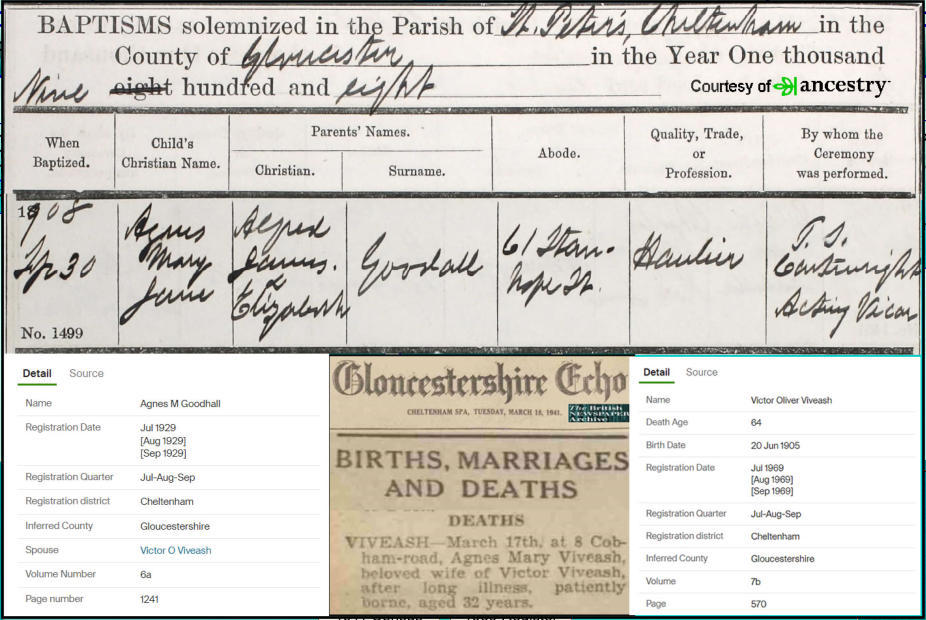 BAPTISMS solemnized in the Parish of St. Peter's, Cheltenham in the
County of Gloucester in the Year One thousand
Nine eight hundred and eight
Courtesy of ancestry
When Baptized.
Child's Christian Name.
Parents' Names.
Christian.
Surname.
Abode.
Quality, Trade, or Profession.
By whom the Ceremony was performed.
1908
Ap 30
No. 1499
Agnes
Mary
Jane
Alfred
James.
Elizabeth
Goodall
61 Stan-
hope St.
Haulier
T. S.
Cartwright
Acting Vicar
Detail Source
Name Agnes M Goodhall
Registration Date Jul 1929
[Aug 1929]
[Sep 1929]
Registration Quarter Jul-Aug-Sep
Registration district Cheltenham
Inferred County Gloucestershire
Spouse Victor O Viveash
Volume Number 6a
Page number 1241
Gloucestershire Echo
CHELTENHAM SPA, TUESDAY, MARCH 18, 1941.
The British
NEWSPAPER
Archive
BIRTHS, MARRIAGES
AND DEATHS
DEATHS
VIVEASH—March 17th, at 8 Cob-
ham-road, Agnes Mary Viveash,
beloved wife of Victor Viveash,
after long illness, patiently
borne, aged 32 years.
Detail Source
Name Victor Oliver Viveash
Death Age 64
Birth Date 20 Jun 1905
Registration Date Jul 1969
[Aug 1969]
[Sep 1969]
Registration Quarter Jul-Aug-Sep
Registration district Cheltenham
Inferred County Gloucestershire
Volume 7b
Page 570